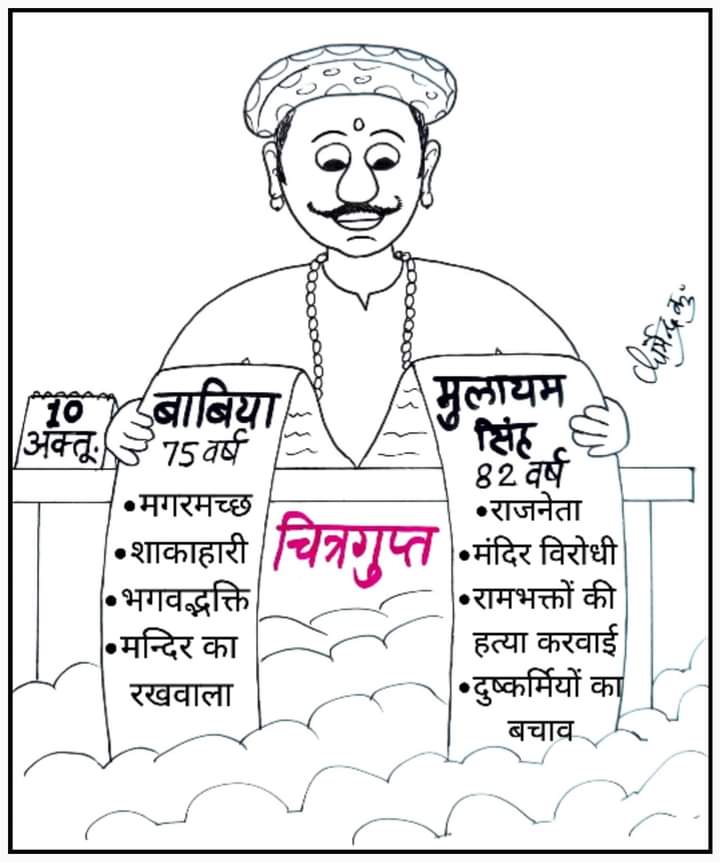 10
अक्तू.
बाबिया
75 वर्ष
•मगरमच्छ
•शाकाहारी
•भगवद्भक्ति
•मन्दिर का
रखवाला
चित्रगुप्त
मुलायम
सिंह
82 वर्ष
•राजनेता
•मंदिर विरोधी
•रामभक्तों की
हत्या करवाई
•दुष्कर्मियों का
बचाव